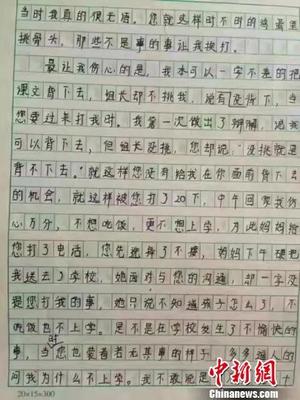 当时我真的很无语。您就这样时不时的鸡蛋里
挑骨头,那些不是事的事让我挨打。
最让我伤心的是,我本可以一字不差的把
课文背下去,组长却不挑我,说有没背下,当
您要过来打我时。我第一次做出了辩解,说我
可以背下去,但组长没挑,您却说“没挑就是
背不下去。”就这样您没有给我在你面前背下去
的机会,就这样被您打了20下,中午回家我伤
心万分,不想吃饭,更不想上学,为此妈妈给
您打了电话,您先选择了不接,妈妈下午硬把
我送去了学校,她面对与您的沟通,却一字没
提您打我的事,她只说不知道孩子怎么了,不
吃饭也不上学。是不是在学校发生了不愉快的
事,当时您也装着若无其事的样子,多多逼人的
问我为什么不上学。我不敢说是
20×15=300
中新网